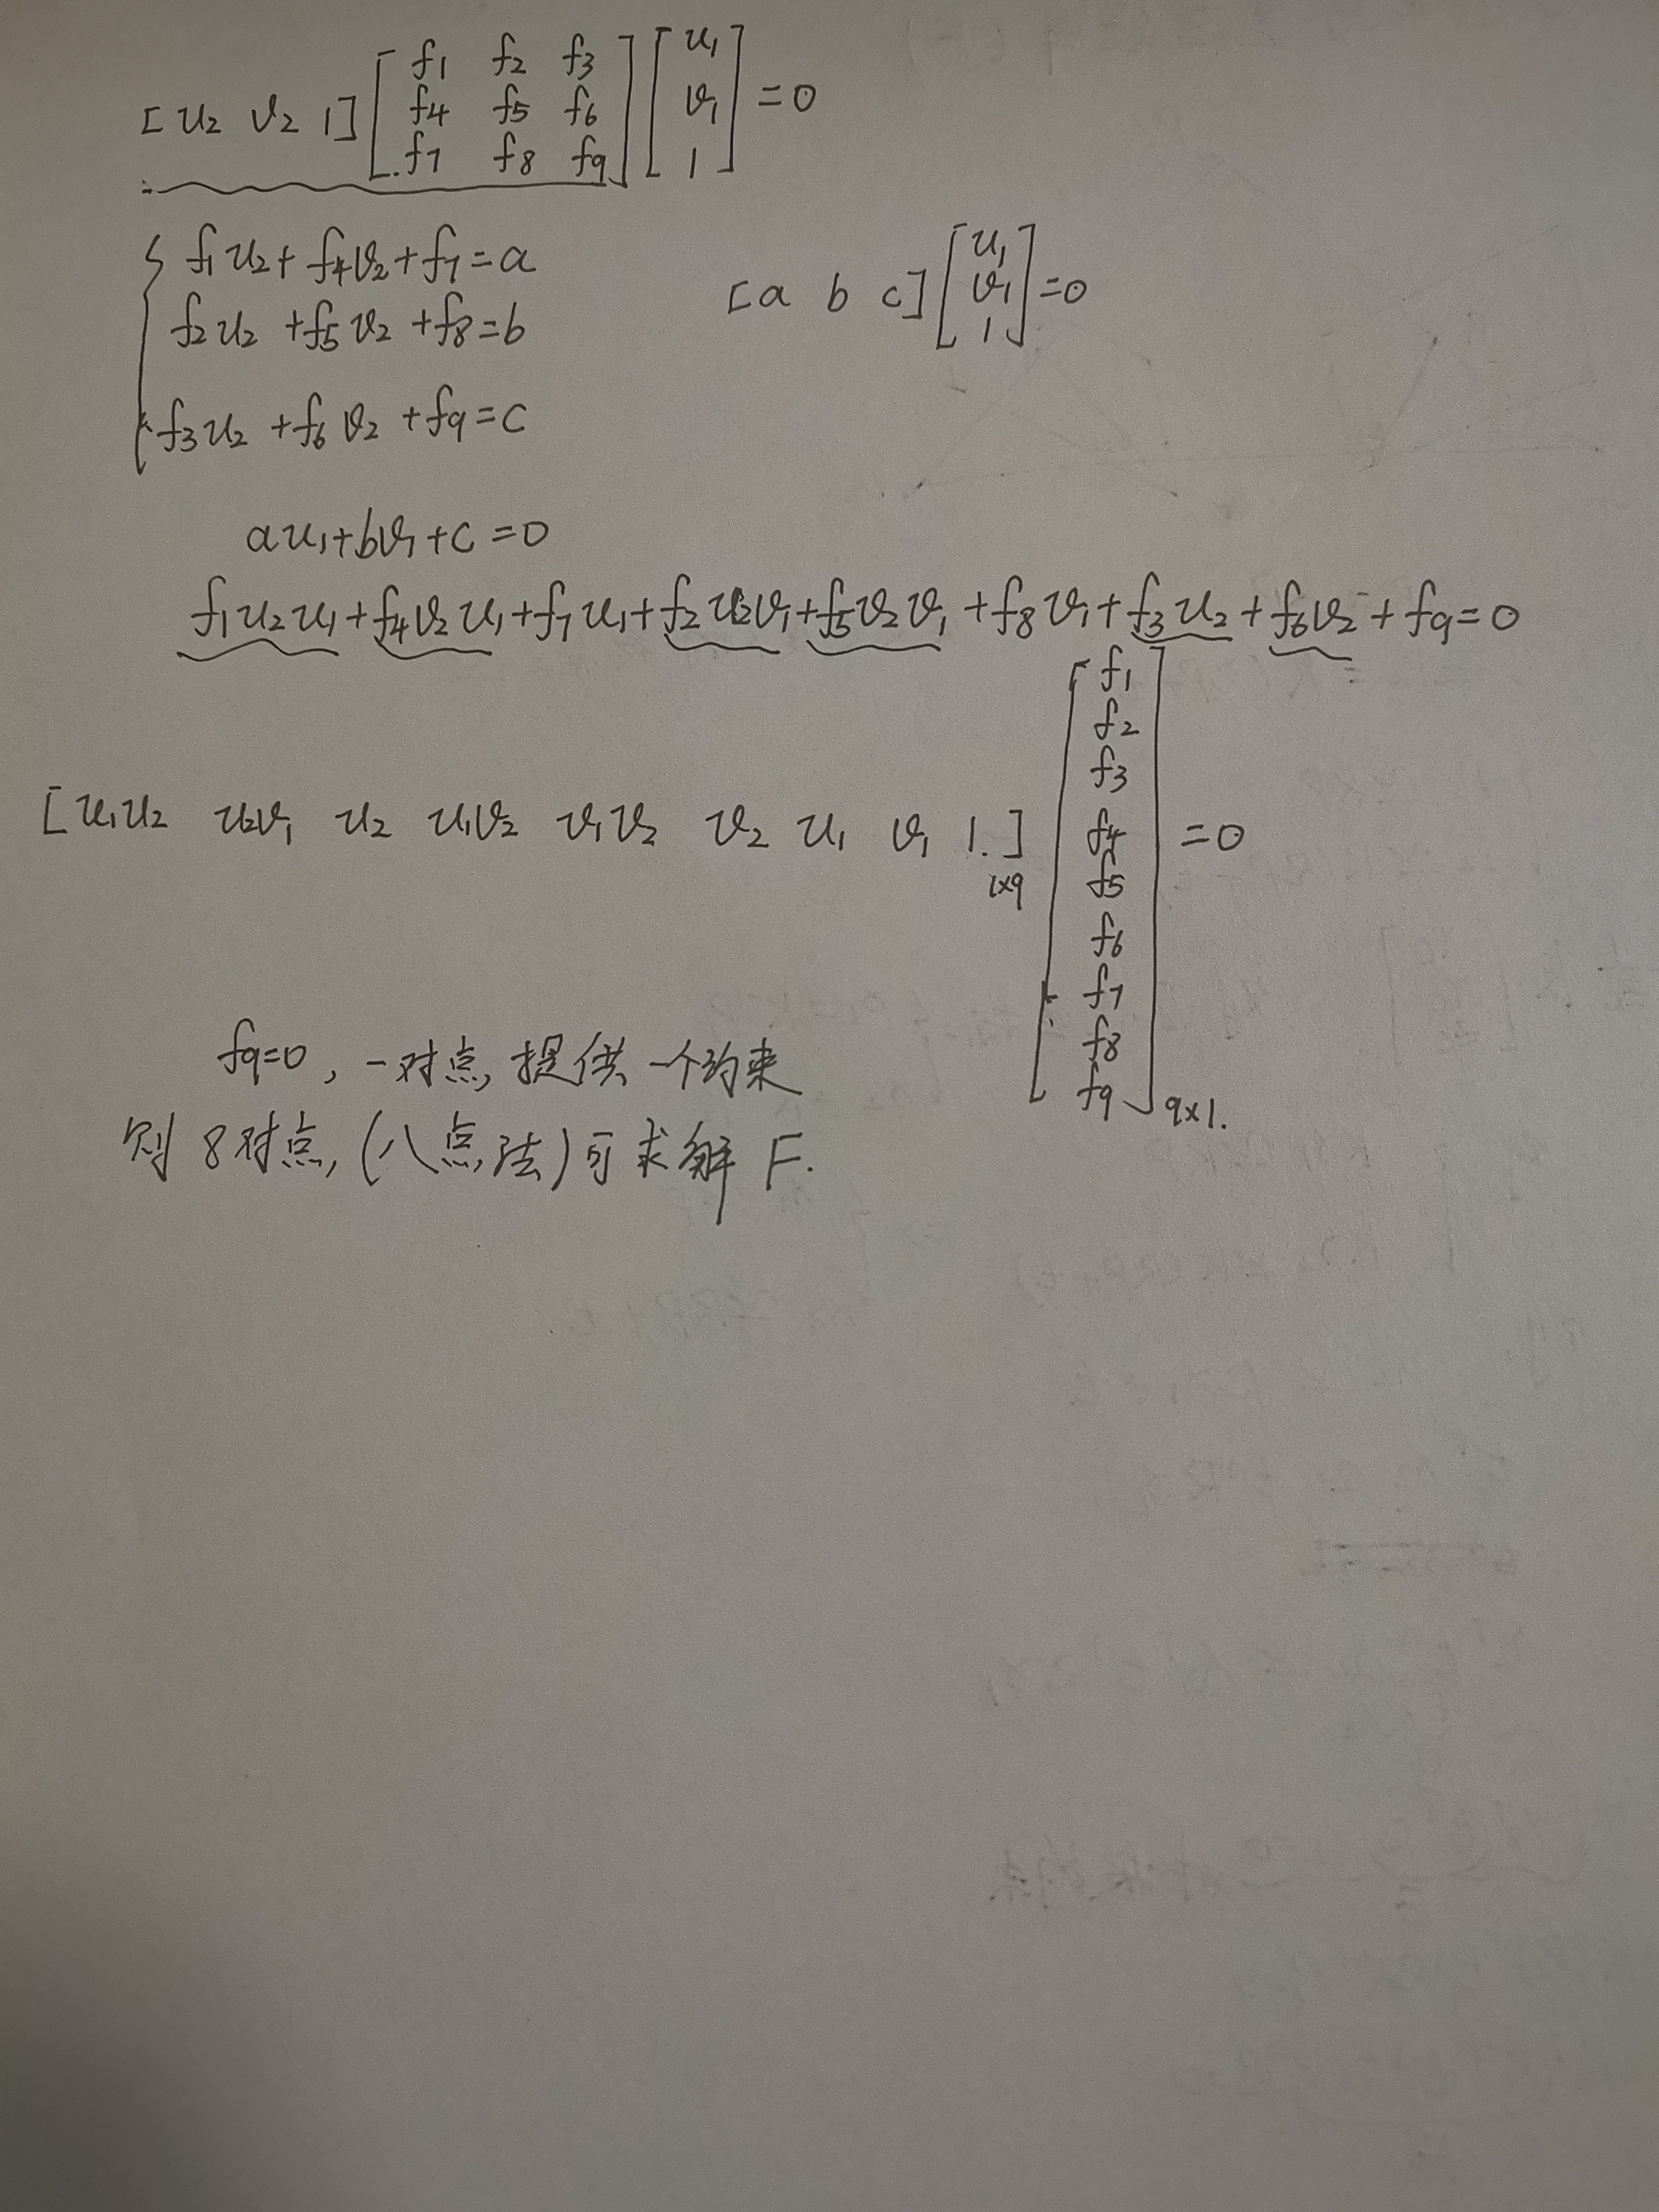 [u₂ v₂ 1] [f₁ f₂ f₃; f₄ f₅ f₆; f₇ f₈ f₉] [u₁; v₁; 1] = 0
f₁u₂ + f₄v₂ + f₇ = a
f₂u₂ + f₅v₂ + f₈ = b
f₃u₂ + f₆v₂ + f₉ = c
[a b c] [u₁; v₁; 1] = 0
au₁ + bv₁ + c = 0
f₁u₂u₁ + f₄v₂u₁ + f₇u₁ + f₂u₂v₁ + f₅v₂v₁ + f₈v₁ + f₃u₂ + f₆v₂ + f₉ = 0
[u₁u₂ u₂v₁ u₂ u₁v₂ v₁v₂ v₂ u₁ v₁ 1.]1×9 [f₁; f₂; f₃; f₄; f₅; f₆; f₇; f₈; f₉]9×1. = 0
f₉=0, 一对点, 提供一个约束
则 8对点, (八点法) 可求解 F.